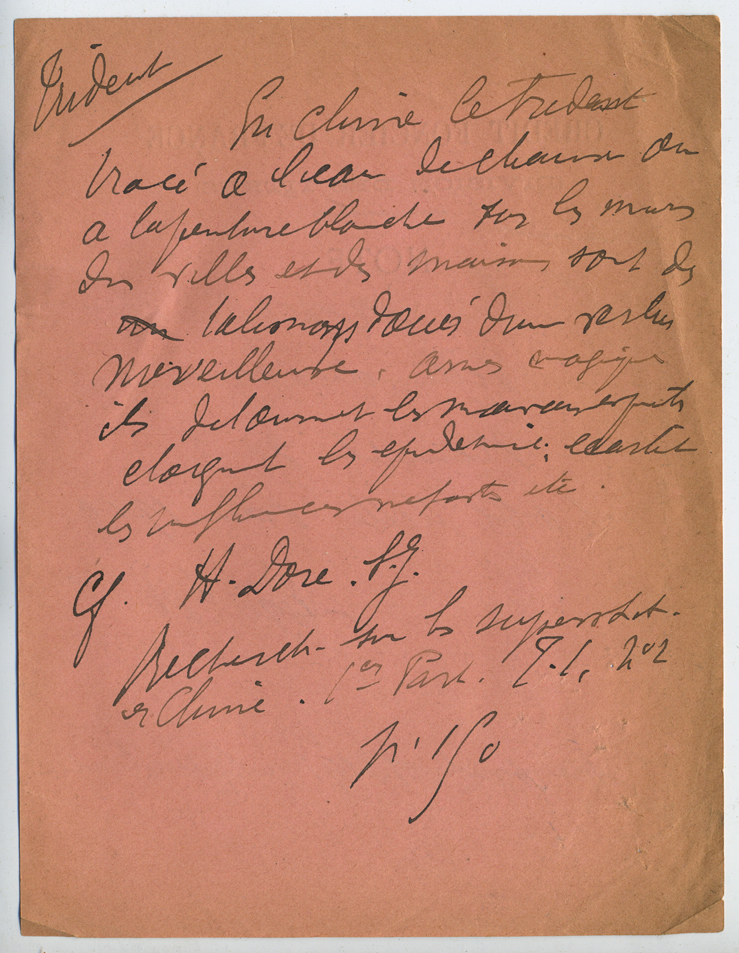 Trident
En Chine le trident
tracé a l'eau de chaux ou
a la peinture blanche sur les murs
des villes et des maisons sont des
talismans doués d'une vertu
merveilleuse. armes magiques
ils detournent les mauvais esprits
eloignent les epidemies, ecartent
les influences nefastes etc.
Cf. H. Dore. S.J.
Recherches sur les superstit.
en Chine. 1er Part. T.I, n°2
p. 150